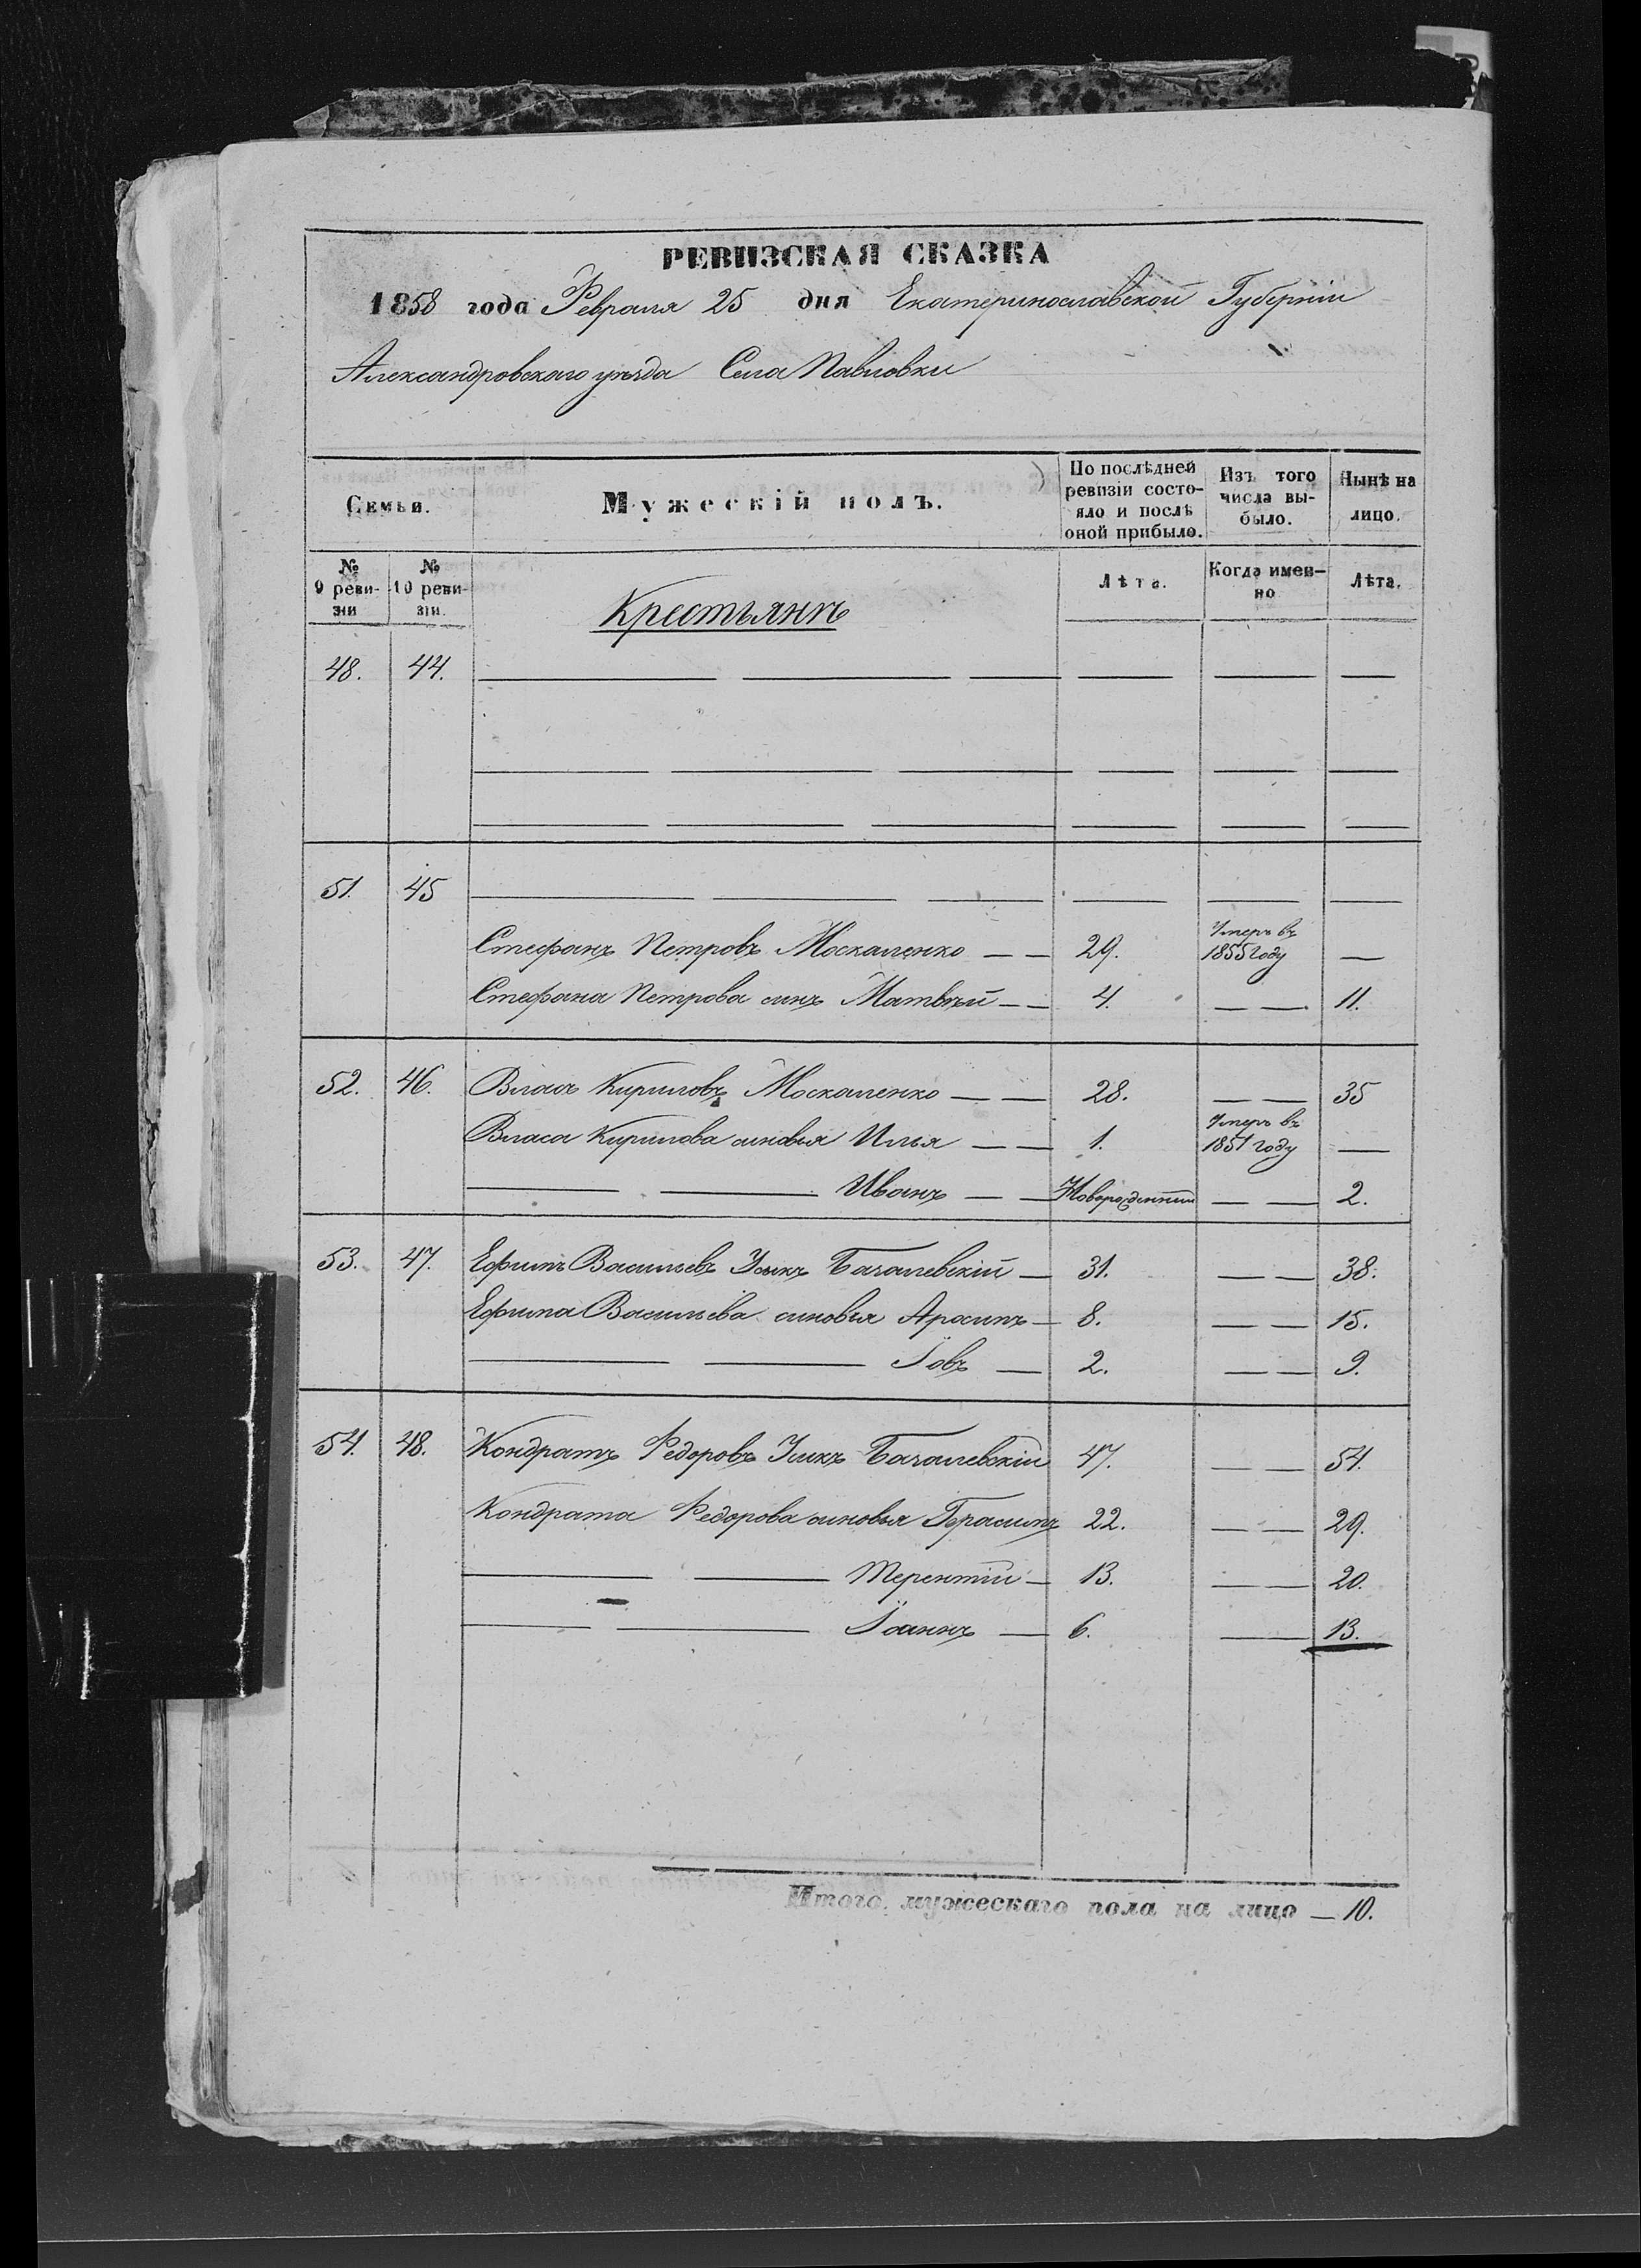 РЕВИЗСКАЯ СКАЗКА
1858 года Февраля 25 дня Екатеринославской Губерніи
Александровскаго уѣзда Села Павловки
Семьи.
Мужескій полъ.
По послѣдней ревизіи состояло и послѣ оной прибыло.
Изъ того числа выбыло.
Нынѣ на лицо.
№ 9 ревизіи
№ 10 ревизіи.
Крестьянъ
Лѣта.
Когда именно
Лѣта.
48. 44. — — — — — —
— — — — — —
— — — — — —
51. 45 — — — — — —
Стефанъ Петровъ Москаленко — — 29. Умеръ въ 1855 году —
Стефана Петрова сынъ Матвѣй — — 4. — — 11.
52. 46. Власъ Кириловъ Москаленко — — 28. — — 35
Власа Кирилова сыновья Илья — — 1. Умеръ въ 1851 году —
— — Иванъ — — Новорожденный — — 2.
53. 47. Ефимъ Васильевъ Усыкъ Бачалевскій — 31. — — 38.
Ефима Васильева сыновья — 8. — — 15.
— — Іовъ — 2. — — 9.
54. 48. Кондратъ Федоровъ Усыкъ Бачалевскій 47. — — 54.
Кондрата Федорова сыновья Герасимъ 22. — — 29.
— — Терентій — 13. — — 20.
— — Іоаннъ — 6. — 13.
Итого мужескаго пола на лицо — 10.